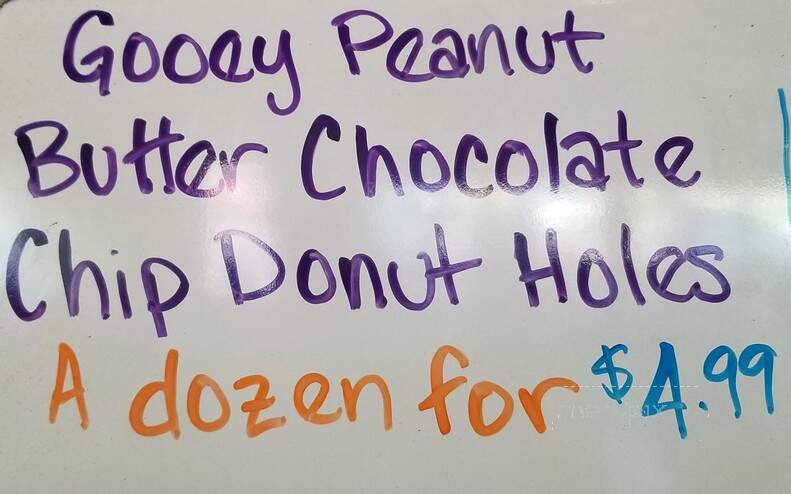 Gooey Peanut
Butter Chocolate
Chip Donut Holes
A dozen for $4.99